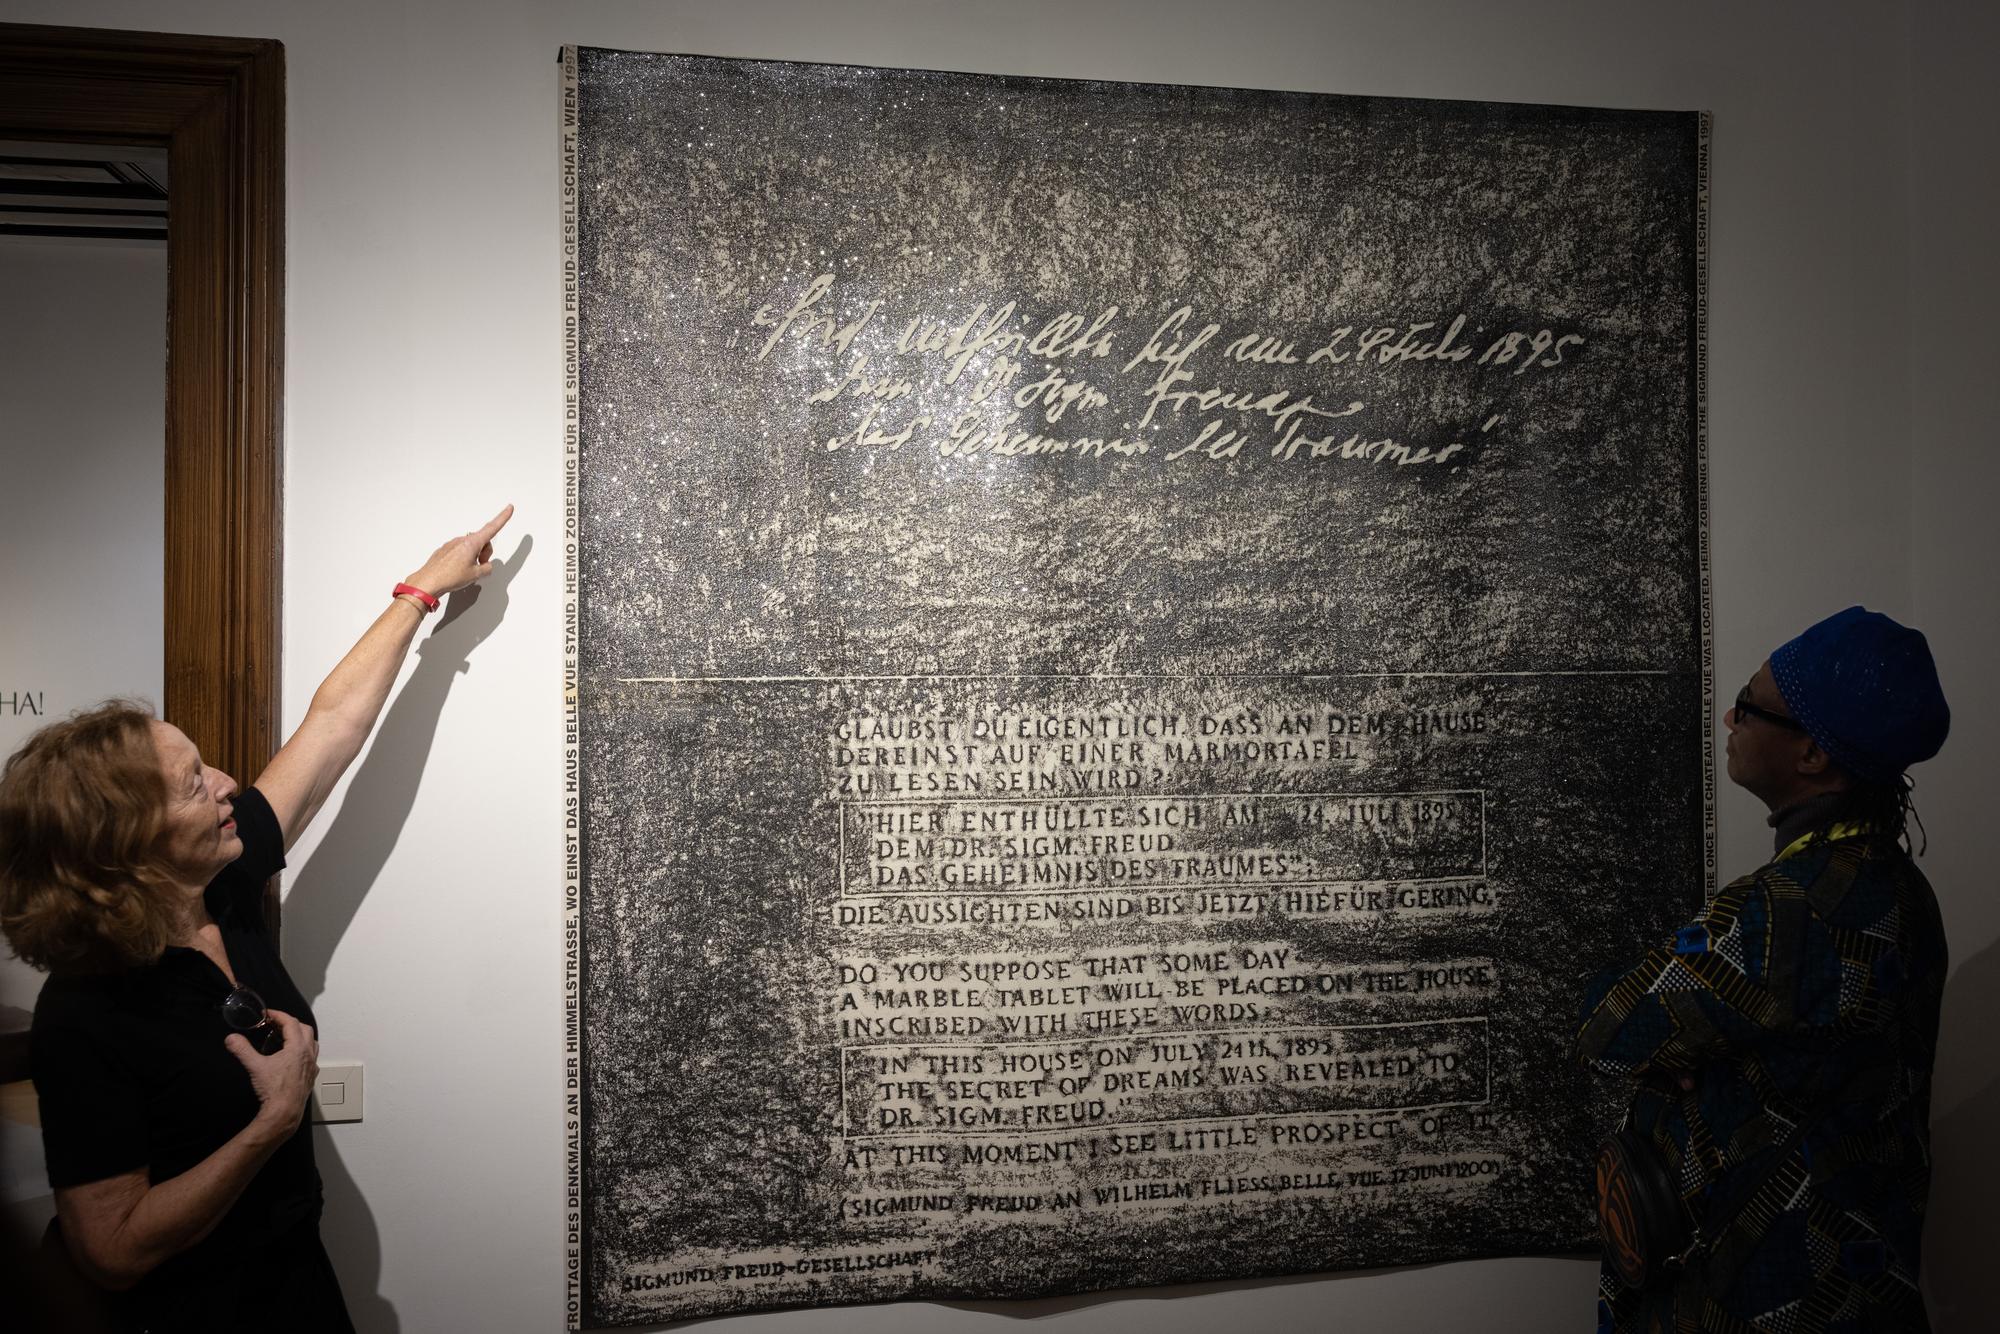 HA!
FROTTAGE DES DENKMALS AN DER HIMMELSTRASSE, WO EINST DAS HAUS BELLE VUE STAND. HEIMO ZOBERNIG FÜR DIE SIGMUND FREUD-GESELLSCHAFT, WIEN 1997
„Hier enthüllte sich am 24. Juli 1895
dem Dr. Sigm. Freud
das Geheimnis des Traumes."
GLAUBST DU EIGENTLICH, DASS AN DEM HAUSE
DEREINST AUF EINER MARMORTAFEL
ZU LESEN SEIN WIRD?:
"HIER ENTHÜLLTE SICH AM 24. JULI 1895
DEM DR. SIGM. FREUD
DAS GEHEIMNIS DES TRAUMES";
DIE AUSSICHTEN SIND BIS JETZT HIEFÜR GERING.
DO YOU SUPPOSE THAT SOME DAY
A MARBLE TABLET WILL BE PLACED ON THE HOUSE
INSCRIBED WITH THESE WORDS:
"IN THIS HOUSE ON JULY 24TH, 1895
THE SECRET OF DREAMS WAS REVEALED TO
DR. SIGM. FREUD."
AT THIS MOMENT I SEE LITTLE PROSPECT OF IT.
(SIGMUND FREUD AN WILHELM FLIESS, BELLE VUE, 12 JUNI 1900)
SIGMUND FREUD-GESELLSCHAFT
ERE ONCE THE CHATEAU BELLE VUE WAS LOCATED. HEIMO ZOBERNIG FOR THE SIGMUND FREUD-GESELLSCHAFT, VIENNA 1997